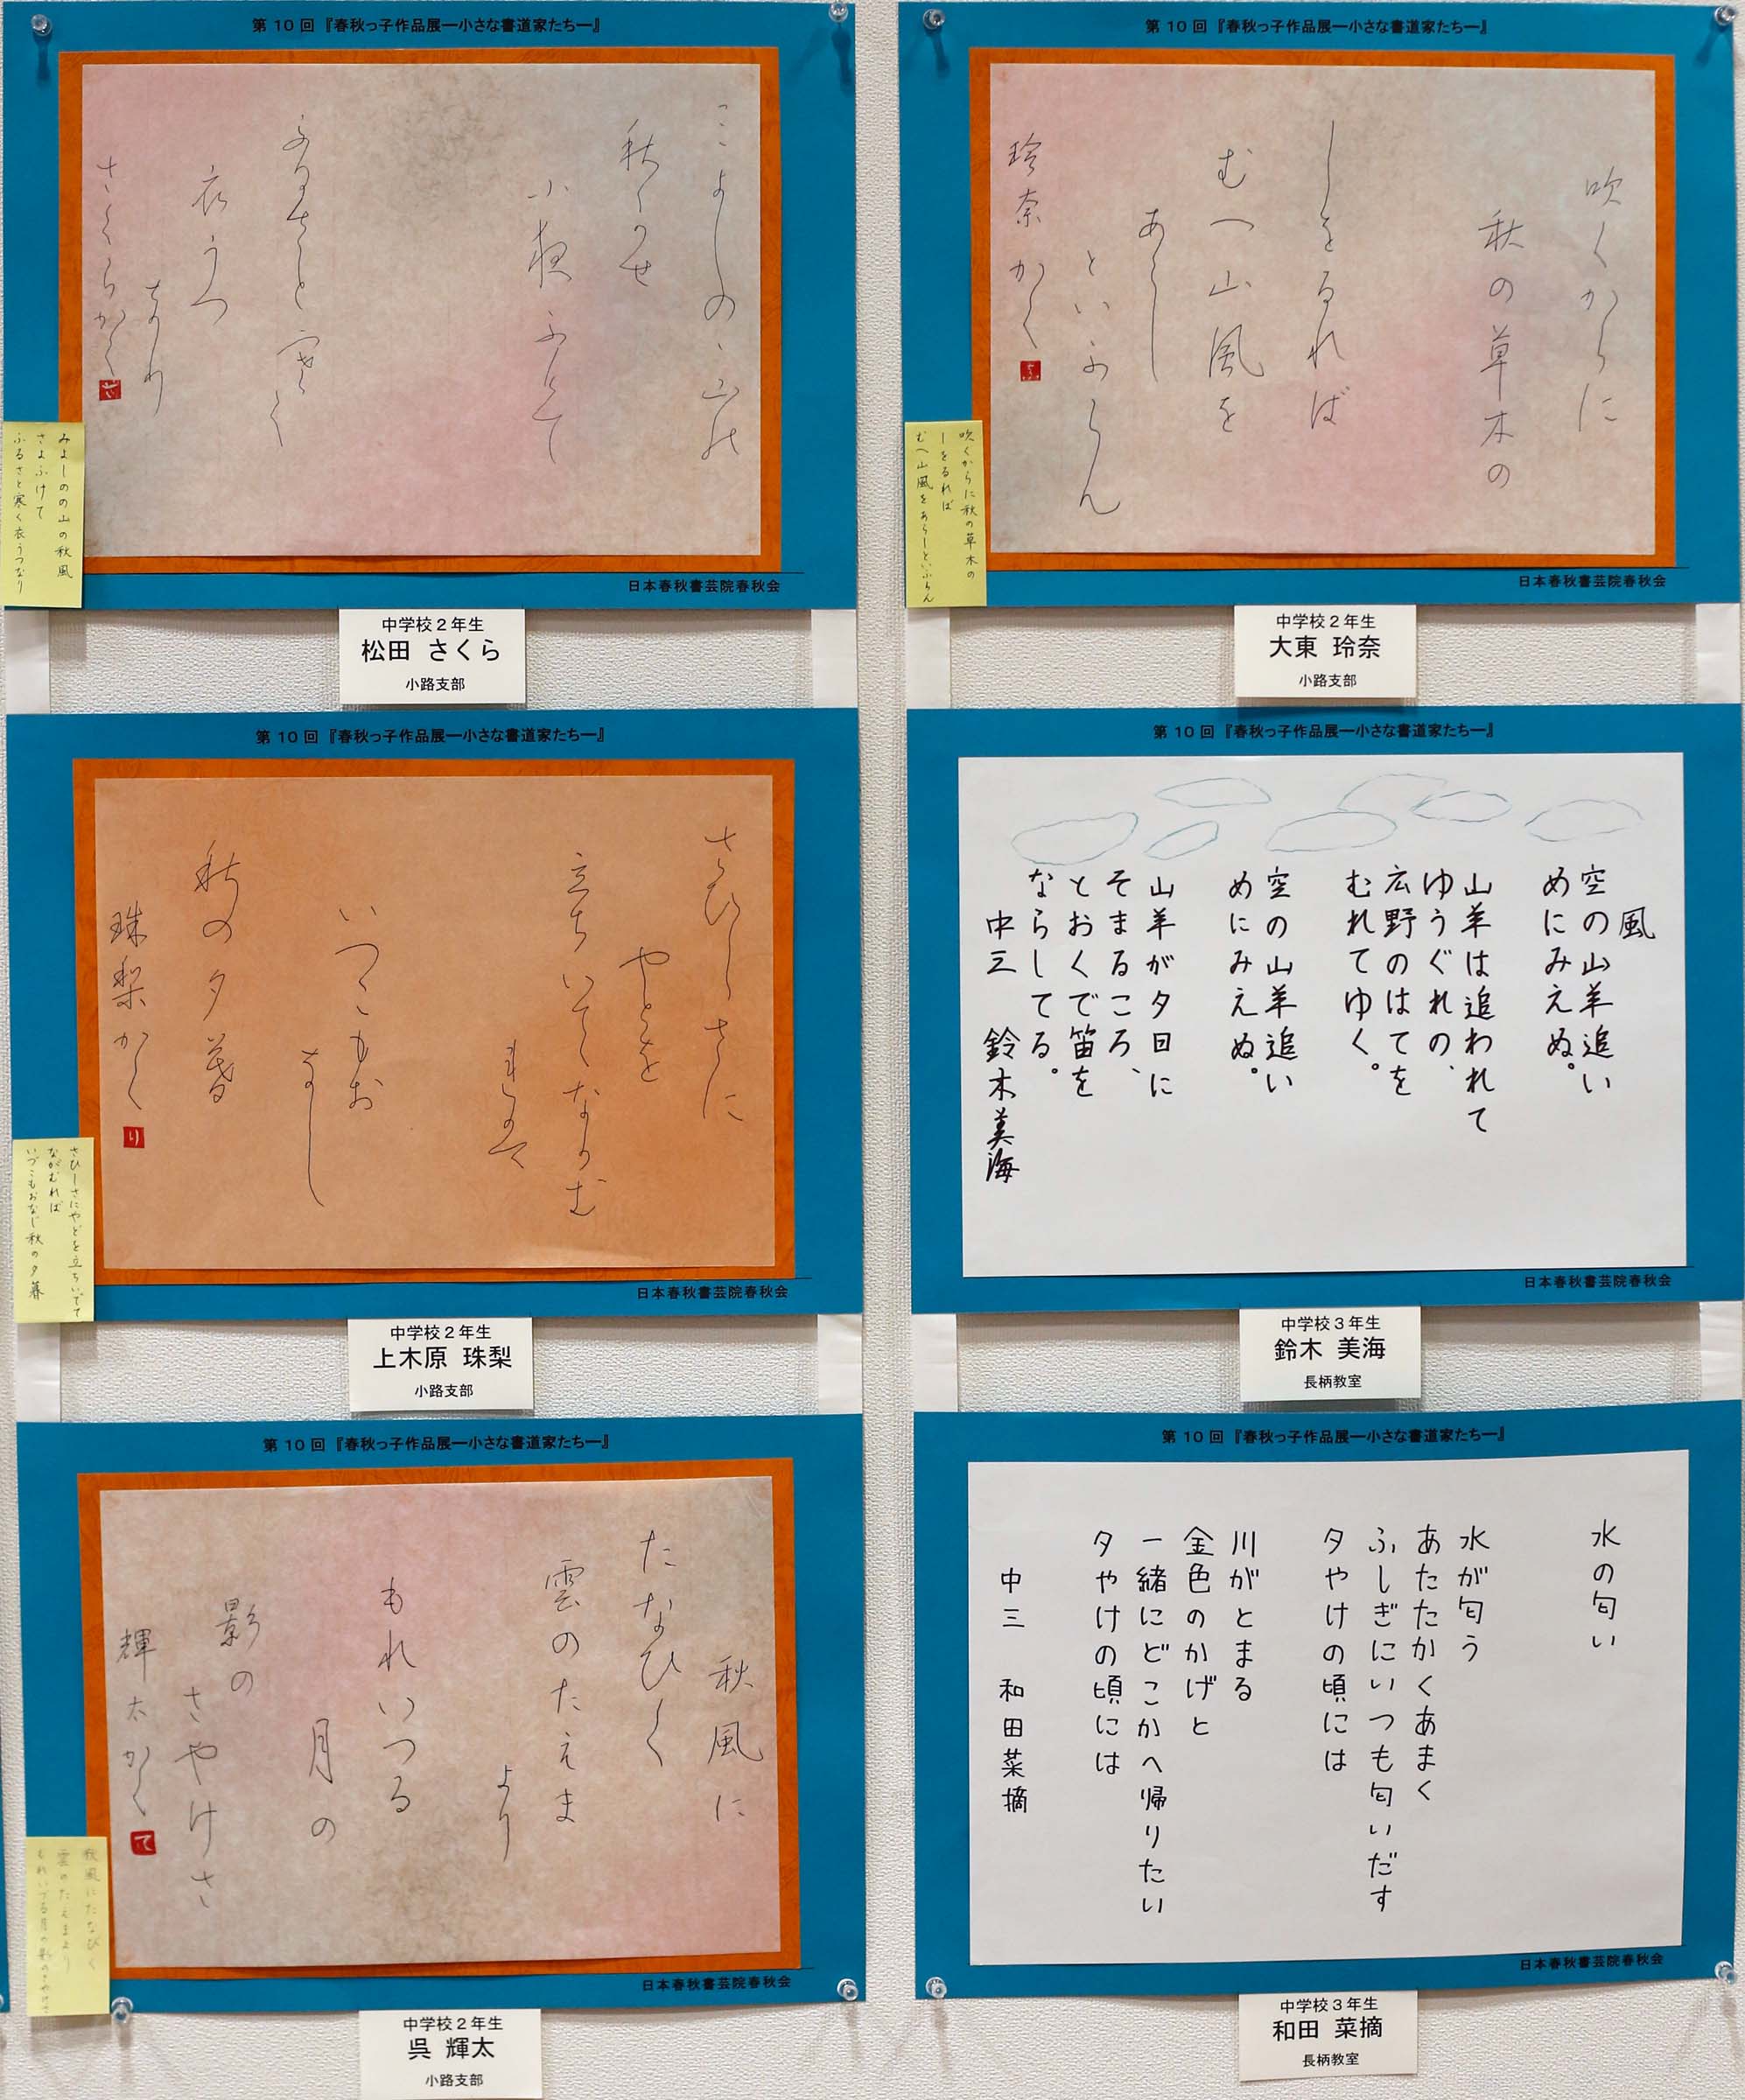 第10回『春秋っ子作品展―小さな書道家たち―』
みよしのゝ山の
秋かせ
小夜ふけて
ふるさと寒く
衣うつ
なり
さくらかく
みよしのの山の秋風
さよふけて
ふるさと寒く衣うつなり
日本春秋書芸院春秋会
中学校2年生
松田 さくら
小路支部
第10回『春秋っ子作品展―小さな書道家たち―』
吹くからに
秋の草木の
しをるれば
むへ山風を
あらし
といふらん
玲奈かく
吹くからに秋の草木の
しをるれば
むへ山風をあらしといふらん
日本春秋書芸院春秋会
中学校2年生
大東 玲奈
小路支部
第10回『春秋っ子作品展―小さな書道家たち―』
さひしさに
やとを
立ちいててなかむ
れは
いつこもお
なし
秋の夕暮
珠梨かく
り
さびしさにやどを立ちいでて
ながむれば
いづこもおなじ秋の夕暮
日本春秋書芸院春秋会
中学校2年生
上木原 珠梨
小路支部
第10回『春秋っ子作品展―小さな書道家たち―』
風
空の山羊追い
めにみえぬ。
山羊は追われて
ゆうぐれの、
広野のはてを
むれてゆく。
空の山羊追い
めにみえぬ。
山羊が夕日に
そまるころ、
とおくで笛を
ならしてる。
中三 鈴木美海
日本春秋書芸院春秋会
中学校3年生
鈴木 美海
長柄教室
第10回『春秋っ子作品展―小さな書道家たち―』
秋風に
たなひく
雲のたえま
より
もれいつる
月の
影の
さやけさ
輝太かく
て
秋風にたなびく
雲のたえまより
もれいづる月の影のさやけさ
日本春秋書芸院春秋会
中学校2年生
呉 輝太
小路支部
第10回『春秋っ子作品展―小さな書道家たち―』
水の匂い
水が匂う
あたたかくあまく
ふしぎにいつも匂いだす
夕やけの頃には
川がとまる
金色のかげと
一緒にどこかへ帰りたい
夕やけの頃には
中三 和田菜摘
日本春秋書芸院春秋会
中学校3年生
和田 菜摘
長柄教室